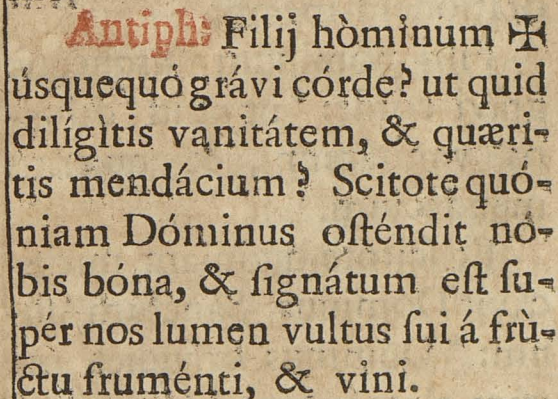 Antiph: Filij hòminum ✠
úsquequó grávi córde? ut quid
dilígìtis vanitátem, & quæri-
tis mendácium? Scitote quó-
niam Dóminus oſténdit no-
bis bóna, & ſignátum eſt ſu-
pér nos lumen vultus ſui á frù-
ctu fruménti, & vini.